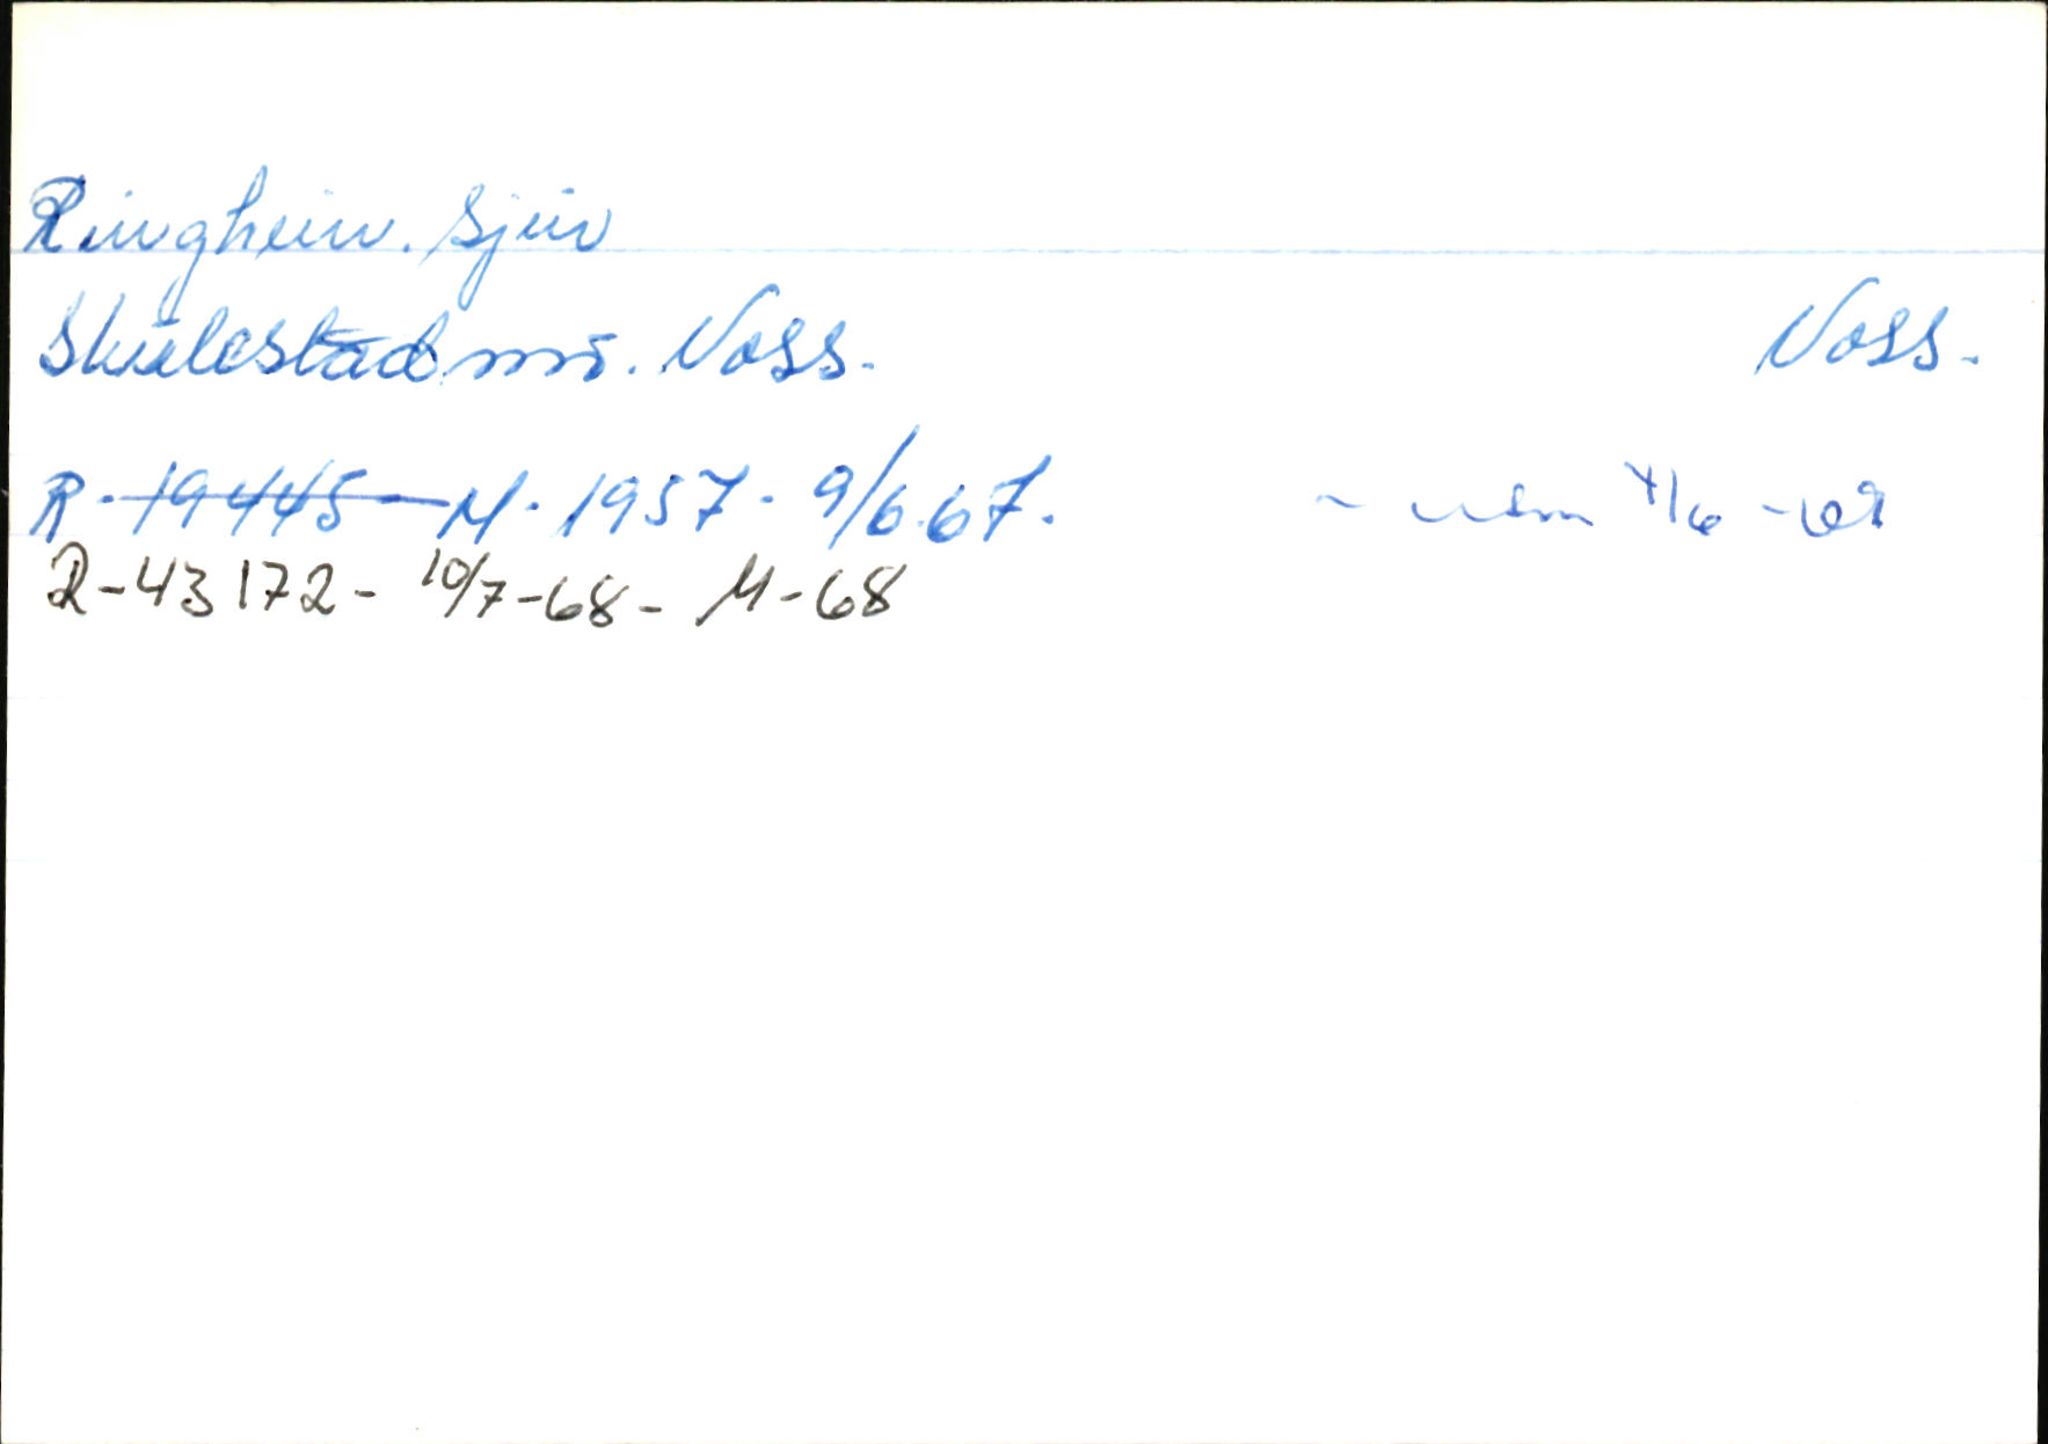 Ringheim. Sjur
Skulestadmo. Voss. Voss.
R. 19445 - M. 1957. 9/6.67.
R-43172- 10/7-68- M-68